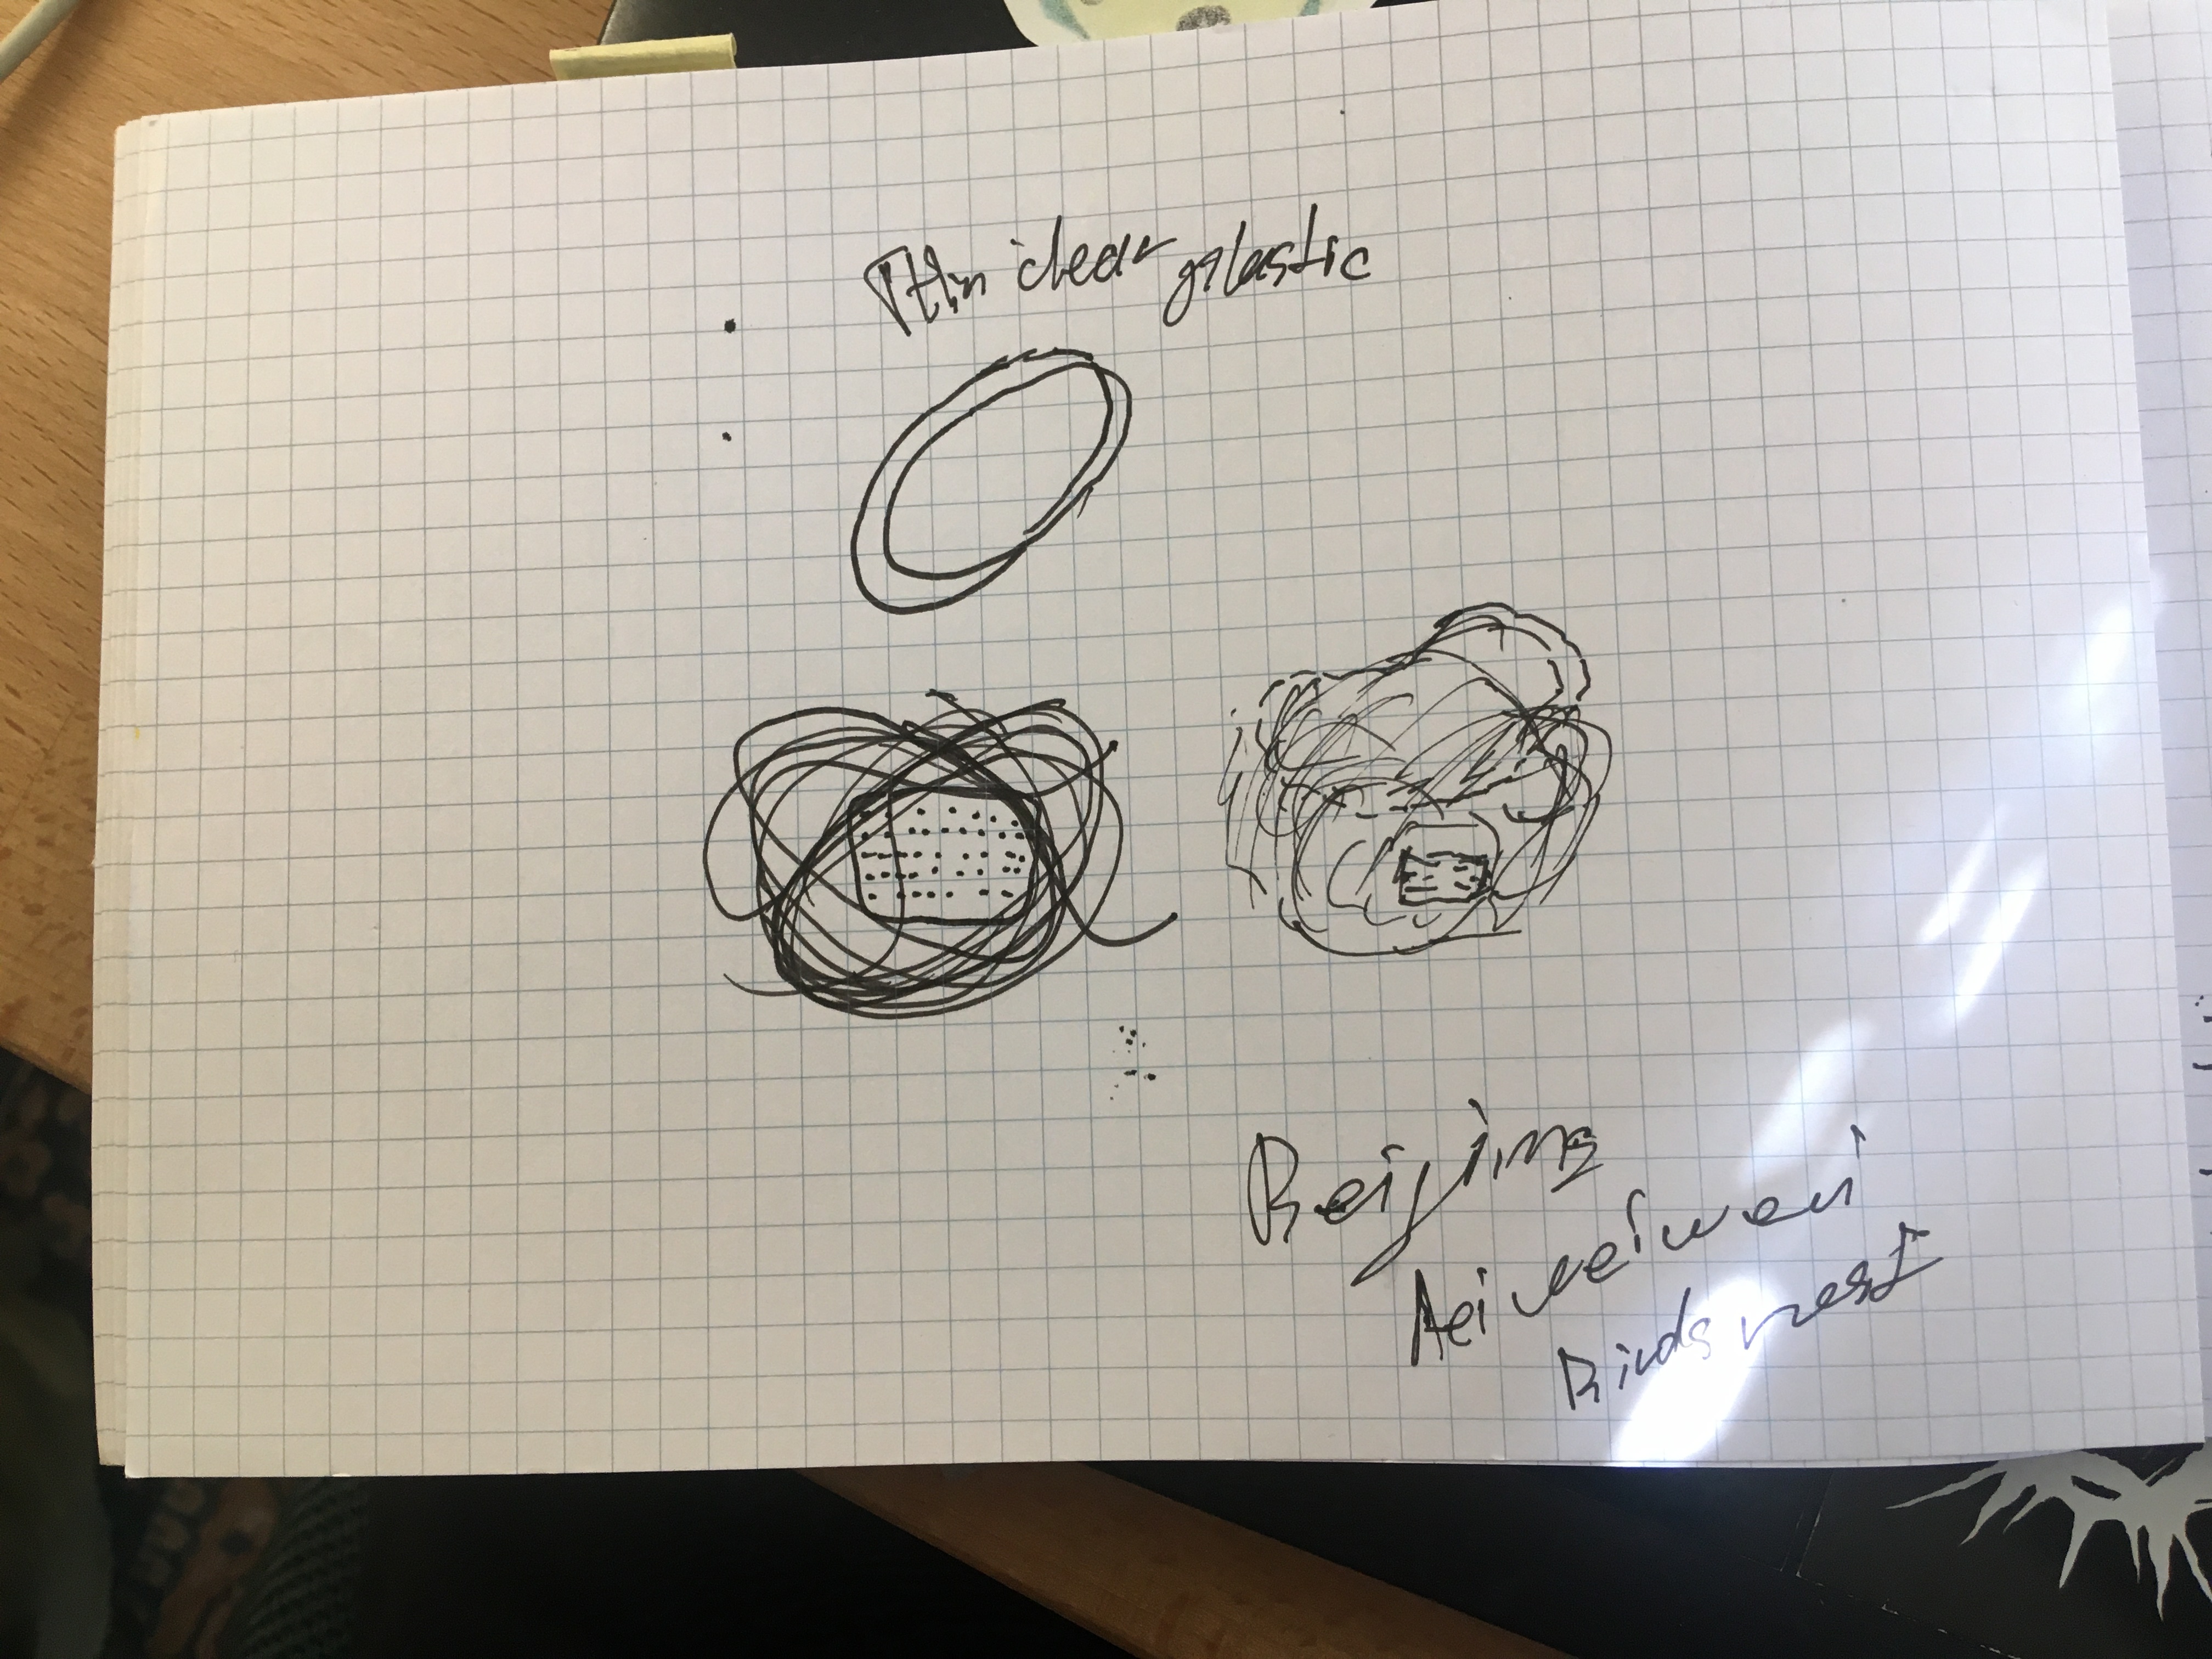 Thin clear plastic
Beijing
Aei weiwei
Birds nest